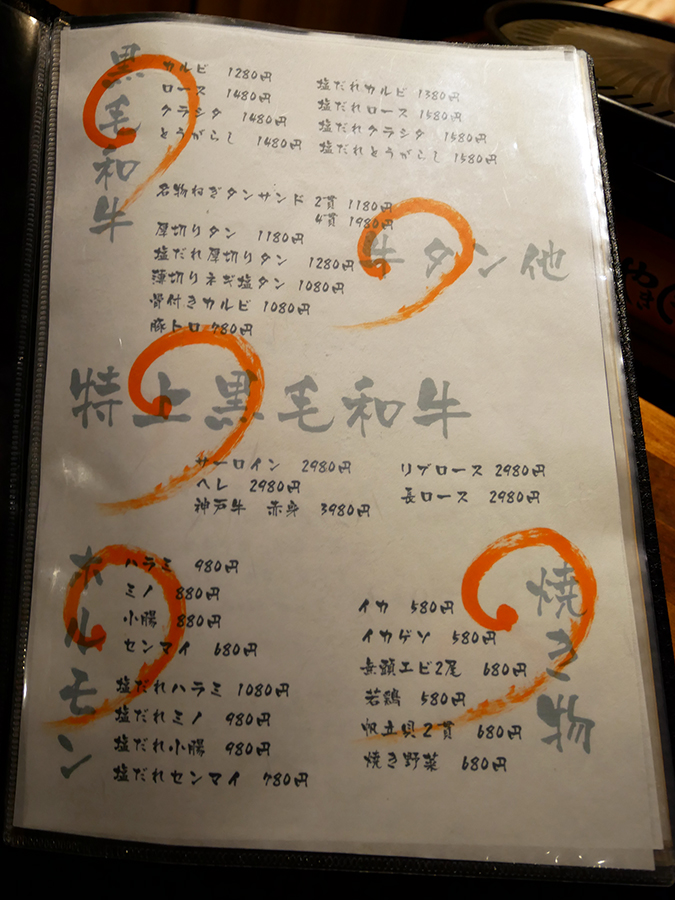 黒毛和牛
カルビ 1280円
ロース 1480円
クラシタ 1480円
とうがらし 1480円
塩だれカルビ 1380円
塩だれロース 1580円
塩だれクラシタ 1580円
塩だれとうがらし 1580円
牛タン他
名物ねぎタンサンド 2貫 1180円
4貫 1980円
厚切りタン 1180円
塩だれ厚切りタン 1280円
薄切りネギ塩タン 1080円
骨付きカルビ 1080円
豚トロ 780円
特上黒毛和牛
サーロイン 2980円
ヘレ 2980円
神戸牛 赤身 3980円
リブロース 2980円
長ロース 2980円
ホルモン
ハラミ 980円
ミノ 880円
小腸 880円
センマイ 680円
塩だれハラミ 1080円
塩だれミノ 980円
塩だれ小腸 980円
塩だれセンマイ 780円
焼き物
イカ 580円
イカゲソ 580円
無頭エビ2尾 680円
若鶏 580円
帆立貝2貫 680円
焼き野菜 680円